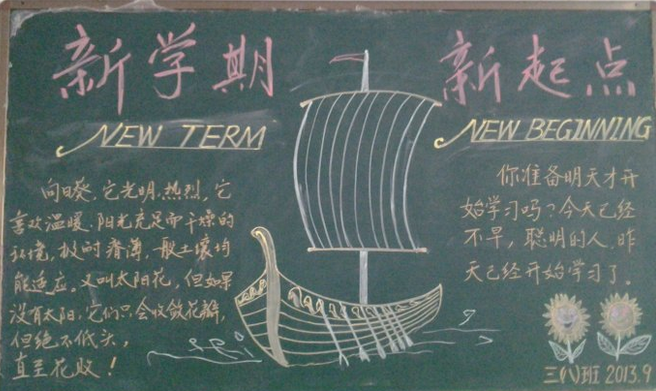 新学期 新起点
NEW TERM NEW BEGINNING
向日葵,它光明、热烈,它
喜欢温暖、阳光充足而干燥的
环境,极耐瘠薄,一般土壤均
能适应,又叫太阳花,但如果
没有太阳,它们只会收敛花瓣,
但绝不低头,
直至花败!
你准备明天才开
始学习吗?今天已经
不早,聪明的人,昨
天已经开始学习了。
三(八)班 2013.9